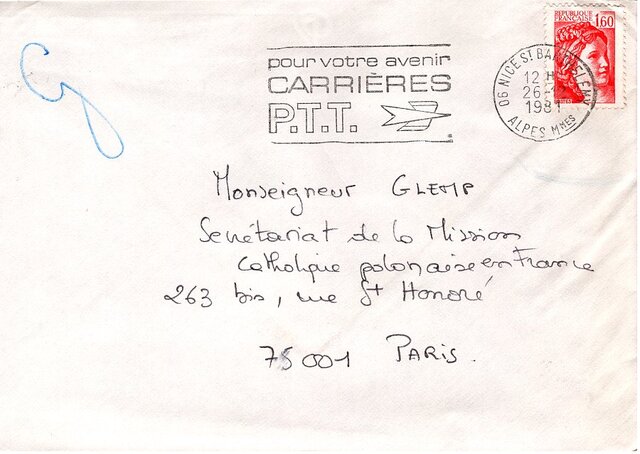 pour votre avenir
CARRIÈRES
P.T.T.
REPUBLIQUE
FRANÇAISE
1,60
06 NICE ST BARTHELEMY
12 H
26-12
1981
ALPES MMES
Monseigneur GLEMP
Secrétariat de la Mission
Catholique polonaise en France
263 bis, rue St Honoré
75001 PARIS.